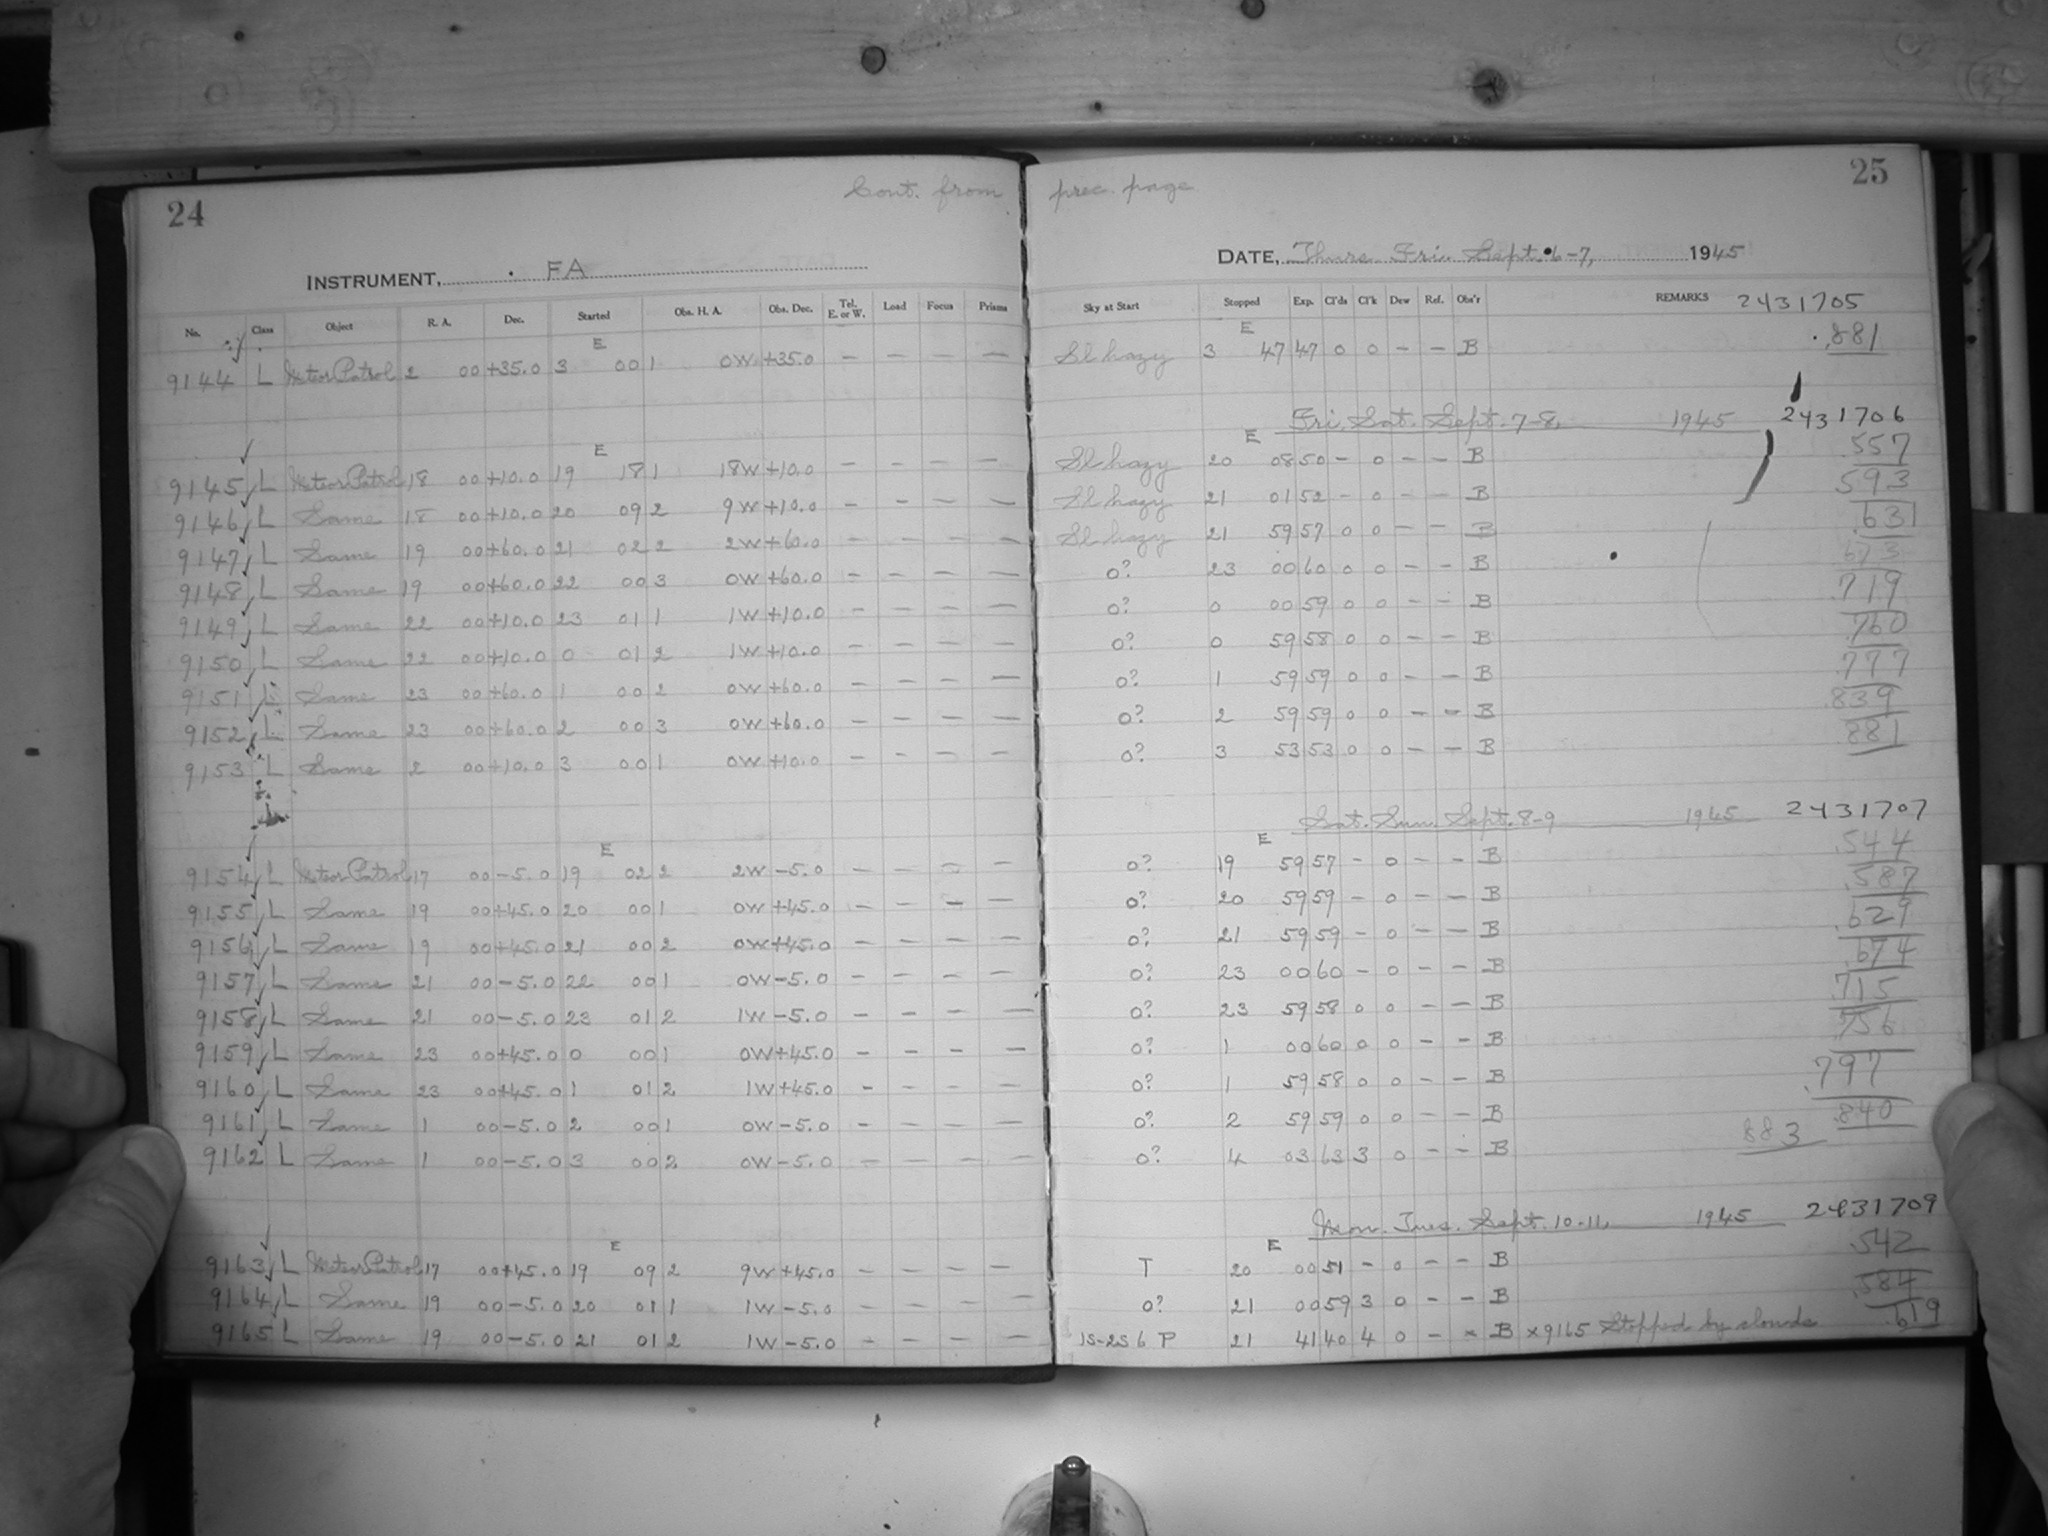 24
Cont. from prec. page
25
INSTRUMENT, FA DATE, Thurs. Fri. Sept. 6-7, 1945
No. Class Object R. A. Dec. Started Obs. H. A. Obs. Dec. Tel. E. or W. Load Focus Prisms Sky at Start Stopped Exp. Cl'ds Cl'k Dew Ref. Obs'r REMARKS 2431705
E E
9144 L Meteor Patrol 2 00 +35.0 3 00 1 0W +35.0 — — — — Sl hazy 3 47 47 0 0 — — B .881
Fri. Sat. Sept. 7-8, 1945 2431706
E E
9145 L Meteor Patrol 18 00 +10.0 19 18 1 18W +10.0 — — — — Sl hazy 20 08 50 — 0 — — B .557
9146 L Same 18 00 +10.0 20 09 2 9W +10.0 — — — — Sl hazy 21 01 52 — 0 — — B 593
9147 L Same 19 00 +60.0 21 02 2 2W +60.0 — — — — Sl hazy 21 59 57 0 0 — — B .631
9148 L Same 19 00 +60.0 22 00 3 0W +60.0 — — — — 0? 23 00 60 0 0 — — B 673
9149 L Same 22 00 +10.0 23 01 1 1W +10.0 — — — — 0? 0 00 59 0 0 — — B .719
9150 L Same 22 00 +10.0 0 01 2 1W +10.0 — — — — 0? 0 59 58 0 0 — — B .760
9151 L Same 23 00 +60.0 1 00 2 0W +60.0 — — — — 0? 1 59 59 0 0 — — B .777
9152 L Same 23 00 +60.0 2 00 3 0W +60.0 — — — — 0? 2 59 59 0 0 — — B .839
9153 L Same 2 00 +10.0 3 00 1 0W +10.0 — — — — 0? 3 53 53 0 0 — — B .881
Sat. Sun. Sept. 8-9 1945 2431707
E E
9154 L Meteor Patrol 17 00 -5.0 19 02 2 2W -5.0 — — — — 0? 19 59 57 — 0 — — B .544
9155 L Same 19 00 +45.0 20 00 1 0W +45.0 — — — — 0? 20 59 59 — 0 — — B .587
9156 L Same 19 00 +45.0 21 00 2 0W +45.0 — — — — 0? 21 59 59 — 0 — — B .629
9157 L Same 21 00 -5.0 22 00 1 0W -5.0 — — — — 0? 23 00 60 — 0 — — B .674
9158 L Same 21 00 -5.0 23 01 2 1W -5.0 — — — — 0? 23 59 58 0 0 — — B .715
9159 L Same 23 00 +45.0 0 00 1 0W +45.0 — — — — 0? 1 00 60 0 0 — — B .756
9160 L Same 23 00 +45.0 1 01 2 1W +45.0 — — — — 0? 1 59 58 0 0 — — B .797
9161 L Same 1 00 -5.0 2 00 1 0W -5.0 — — — — 0? 2 59 59 0 0 — — B .840
9162 L Same 1 00 -5.0 3 00 2 0W -5.0 — — — — 0? 4 03 63 3 0 — — B 883
Mon. Tues. Sept. 10-11, 1945 2431709
E E
9163 L Meteor Patrol 17 00 +45.0 19 09 2 9W +45.0 — — — — T 20 00 51 — 0 — — B .542
9164 L Same 19 00 -5.0 20 01 1 1W -5.0 — — — — 0? 21 00 59 3 0 — — B .584
9165 L Same 19 00 -5.0 21 01 2 1W -5.0 — — — — 1S-2S 6 P 21 41 40 4 0 — × B ×9165 Stopped by clouds .619